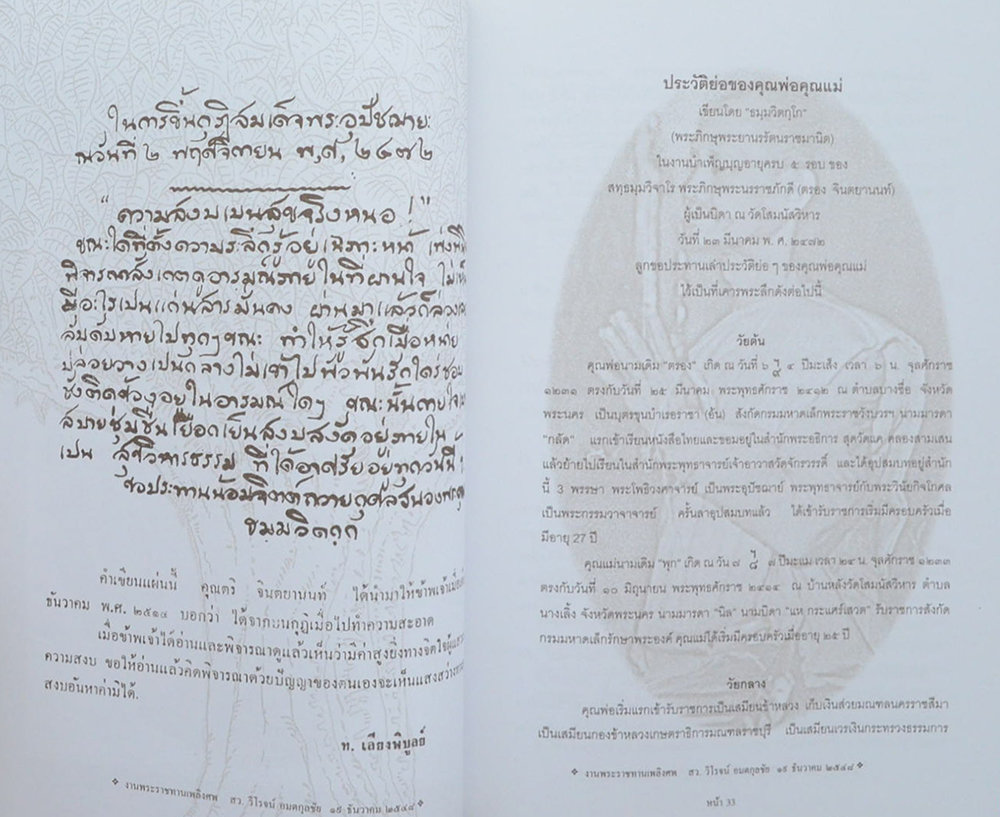 ในการขึ้นกุฏิสมเด็จพระอุปัชฌายะ
ณวันที่ ๒ พฤศจิกายน พ,ศ, ๒๔๗๒
"ความสงบเปนสุขจริงหนอ !"
ขณะใดที่ตั้งความระลึกรู้อยู่เฉพาะหน้า เพ่งพิ
พิจารณาสังเกตดูอารมณ์ภายในที่ผ่านใจ ไม่เห็
มีอะไรเป็นแก่นสารมั่นคง ผ่านมาแล้วก็ล่วงเล
ลับดับหายไปทุกๆขณะ ทำให้รู้สึกเบื่อหน่าย
ปล่อยวางเปนกลางไม่เข้าไปพัวพันรักใคร่ชอบ
ชังติดข้องอยู่ในอารมณ์ใดๆ ขณะนั้นภายใจจะ
สบายชุ่มชื่นเยือกเย็นสงบสงัดอยู่ภายใน
เป็น สุขวิหารธรรม ที่ได้อาศรัยอยู่ทุกวันนี้
ขอประทานน้อมจิตต์ถวายกุศลสนองพระคุ
ธมฺมวิตกฺโก
คำเขียนแผ่นนี้ คุณตริ จินตยานนท์ ได้นำมาให้ข้าพเจ้าเมื่อ
ธันวาคม พ.ศ. ๒๕๑๔ บอกว่า ได้จากบนกุฏิเมื่อไปทำความสะอาด
เมื่อข้าพเจ้าได้อ่านและพิจารณาดูแล้วเห็นว่ามีค่าสูงยิ่งทางจิตใจผู้แสวง
ความสงบ ขอให้อ่านแล้วคิดพิจารณาด้วยปัญญาของตนเองจะเห็นแสงสว่างทาง
สงบอันหาค่ามิได้.
ท. เลียงพิบูลย์
❖ งานพระราชทานเพลิงศพ สว. วิโรจน์ อมตกุลชัย ๑๙ ธันวาคม ๒๕๔๘ ❖
ประวัติย่อของคุณพ่อคุณแม่
เขียนโดย "ธมฺมวิตกฺโก"
(พระภิกษุพระยานรรัตนราชมานิต)
ในงานบำเพ็ญบุญอายุครบ ๕ รอบ ของ
สทฺธมฺมวิจาโร พระภิกษุพระนรราชภักดี (ตรอง จินตยานนท์)
ผู้เป็นบิดา ณ วัดโสมนัสวิหาร
วันที่ ๒๓ มีนาคม พ. ศ. ๒๔๗๒
ลูกขอประทานเล่าประวัติย่อ ๆ ของคุณพ่อคุณแม่
ไว้เป็นที่เคารพระลึกดังต่อไปนี้
วัยต้น
คุณพ่อนามเดิม "ตรอง" เกิด ณ วันที่ ๖ ๔ ปีมะเส็ง เวลา ๖ น. จุลศักราช
๑๒๓๑ ตรงกับวันที่ ๒๕ มีนาคม พระพุทธศักราช ๒๔๑๒ ณ ตำบลบางซื่อ จังหวัด
พระนคร เป็นบุตรขุนบำเรอราชา (อ้น) สังกัดกรมมหาดเล็กพระราชวังบวรฯ นามมารดา
"กลัด" แรกเข้าเรียนหนังสือไทยและขอมอยู่ในสำนักพระอธิการ สุดวัดแค คลองสามเสน
แล้วย้ายไปเรียนในสำนักพระพุทธาจารย์เจ้าอาวาสวัดจักรวรรดิ์ และได้อุปสมบทอยู่สำนัก
นี้ 3 พรรษา พระโพธิวงศาจารย์ เป็นพระอุปัชฌาย์ พระพุทธาจารย์กับพระวินัยกิจโกศล
เป็นพระกรรมวาจาจารย์ ครั้นลาอุปสมบทแล้ว ได้เข้ารับราชการเริ่มมีครอบครัวเมื่อ
มีอายุ 27 ปี
คุณแม่นามเดิม "พุก" เกิด ณ วัน ๗ ๘ ๗ ปีมะแม เวลา ๒๔ น. จุลศักราช ๑๒๓๓
ตรงกับวันที่ ๑๐ มิถุนายน พระพุทธศักราช ๒๔๑๔ ณ บ้านหลังวัดโสมนัสวิหาร ตำบล
นางเลิ้ง จังหวัดพระนคร นามมารดา "นิล" นามบิดา "แห กระแศร์เสวต" รับราชการสังกัด
กรมมหาดเล็กรักษาพระองค์ คุณแม่ได้เริ่มมีครอบครัวเมื่ออายุ ๒๕ ปี
วัยกลาง
คุณพ่อเริ่มแรกเข้ารับราชการเป็นเสมียนข้าหลวง เก็บเงินส่วยมณฑลนครราชสีมา
เป็นเสมียนกองข้าหลวงเกษตราธิการมณฑลราชบุรี เป็นเสมียนเวรเงินกระทรวงธรรมการ
❖ งานพระราชทานเพลิงศพ สว. วิโรจน์ อมตกุลชัย ๑๙ ธันวาคม ๒๕๔๘ ❖
หน้า 33